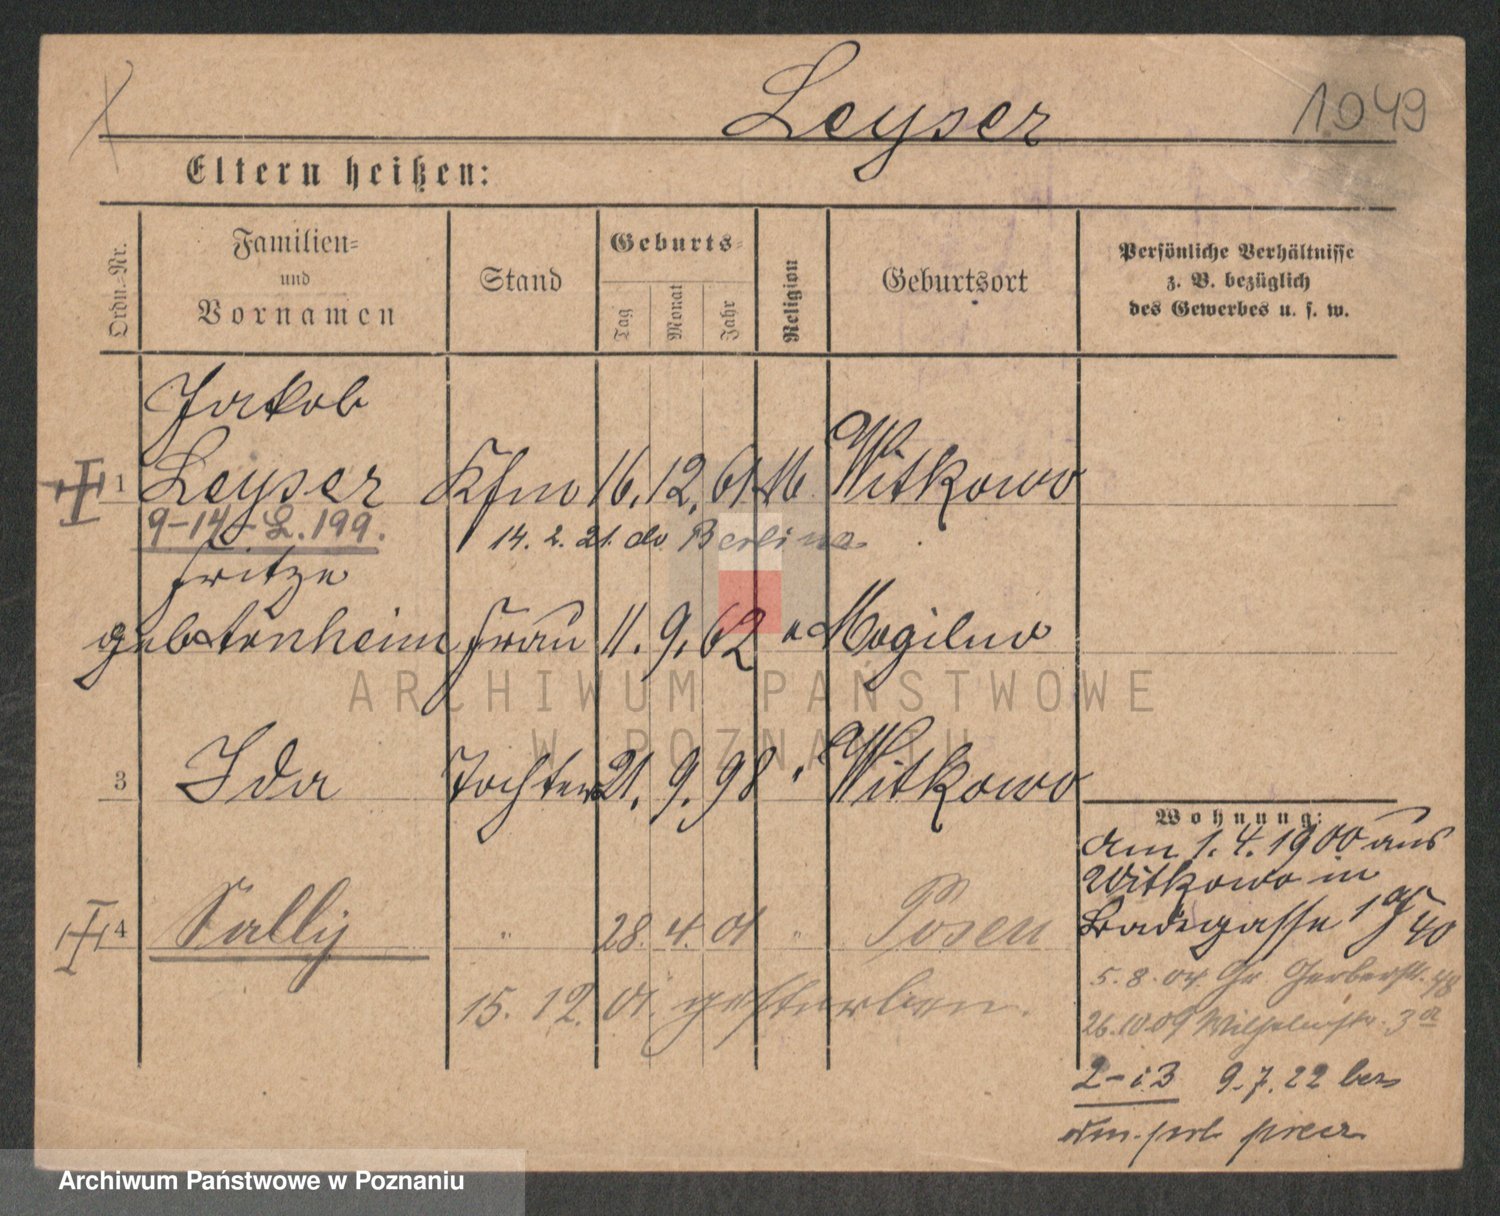 Leyser
1049
Eltern heißen:
Ordn.-Nr.
Familien- und Vornamen
Stand
Geburts-
Tag
Monat
Jahr
Religion
Geburtsort
Persönliche Verhältnisse
z. B. bezüglich
des Gewerbes u. s. w.
Jakob
1 Leyser Kfm 16. 12. 61 Witkowo
9-14-L.199.
14. 2. 21. Berlin
Fritze
geb Frau 11. 9. 62 " Mogilno
ARCHIWUM PAŃSTWOWE
W POZNANIU
3 Ida Tochter 21. 9. 98 " Witkowo
Wohnung:
am 1. 4. 1900 aus
Witkowo in
4 Sally " 28. 4. 01 " Posen
15. 12. 01. gestorben.
5. 8. 04 Gr Gerberstr. 48
26.10.09 Wilhelmstr. 3a
2-i3 9.7.22
Archiwum Państwowe w Poznaniu